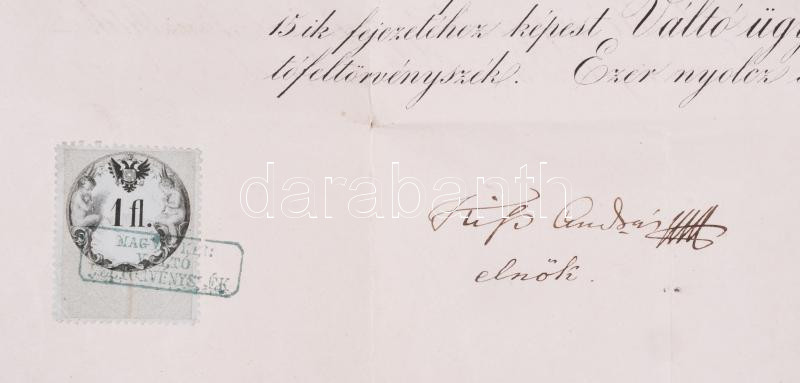 15ik fejezetéhez képest Váltó ügy
tófeltörvényszék. Ezer nyolcz
darabanth.com
1 fl.
MAGY. KIR.
VÁLTÓ
FELTÖRVÉNYSZÉK
Kiss András
elnök.